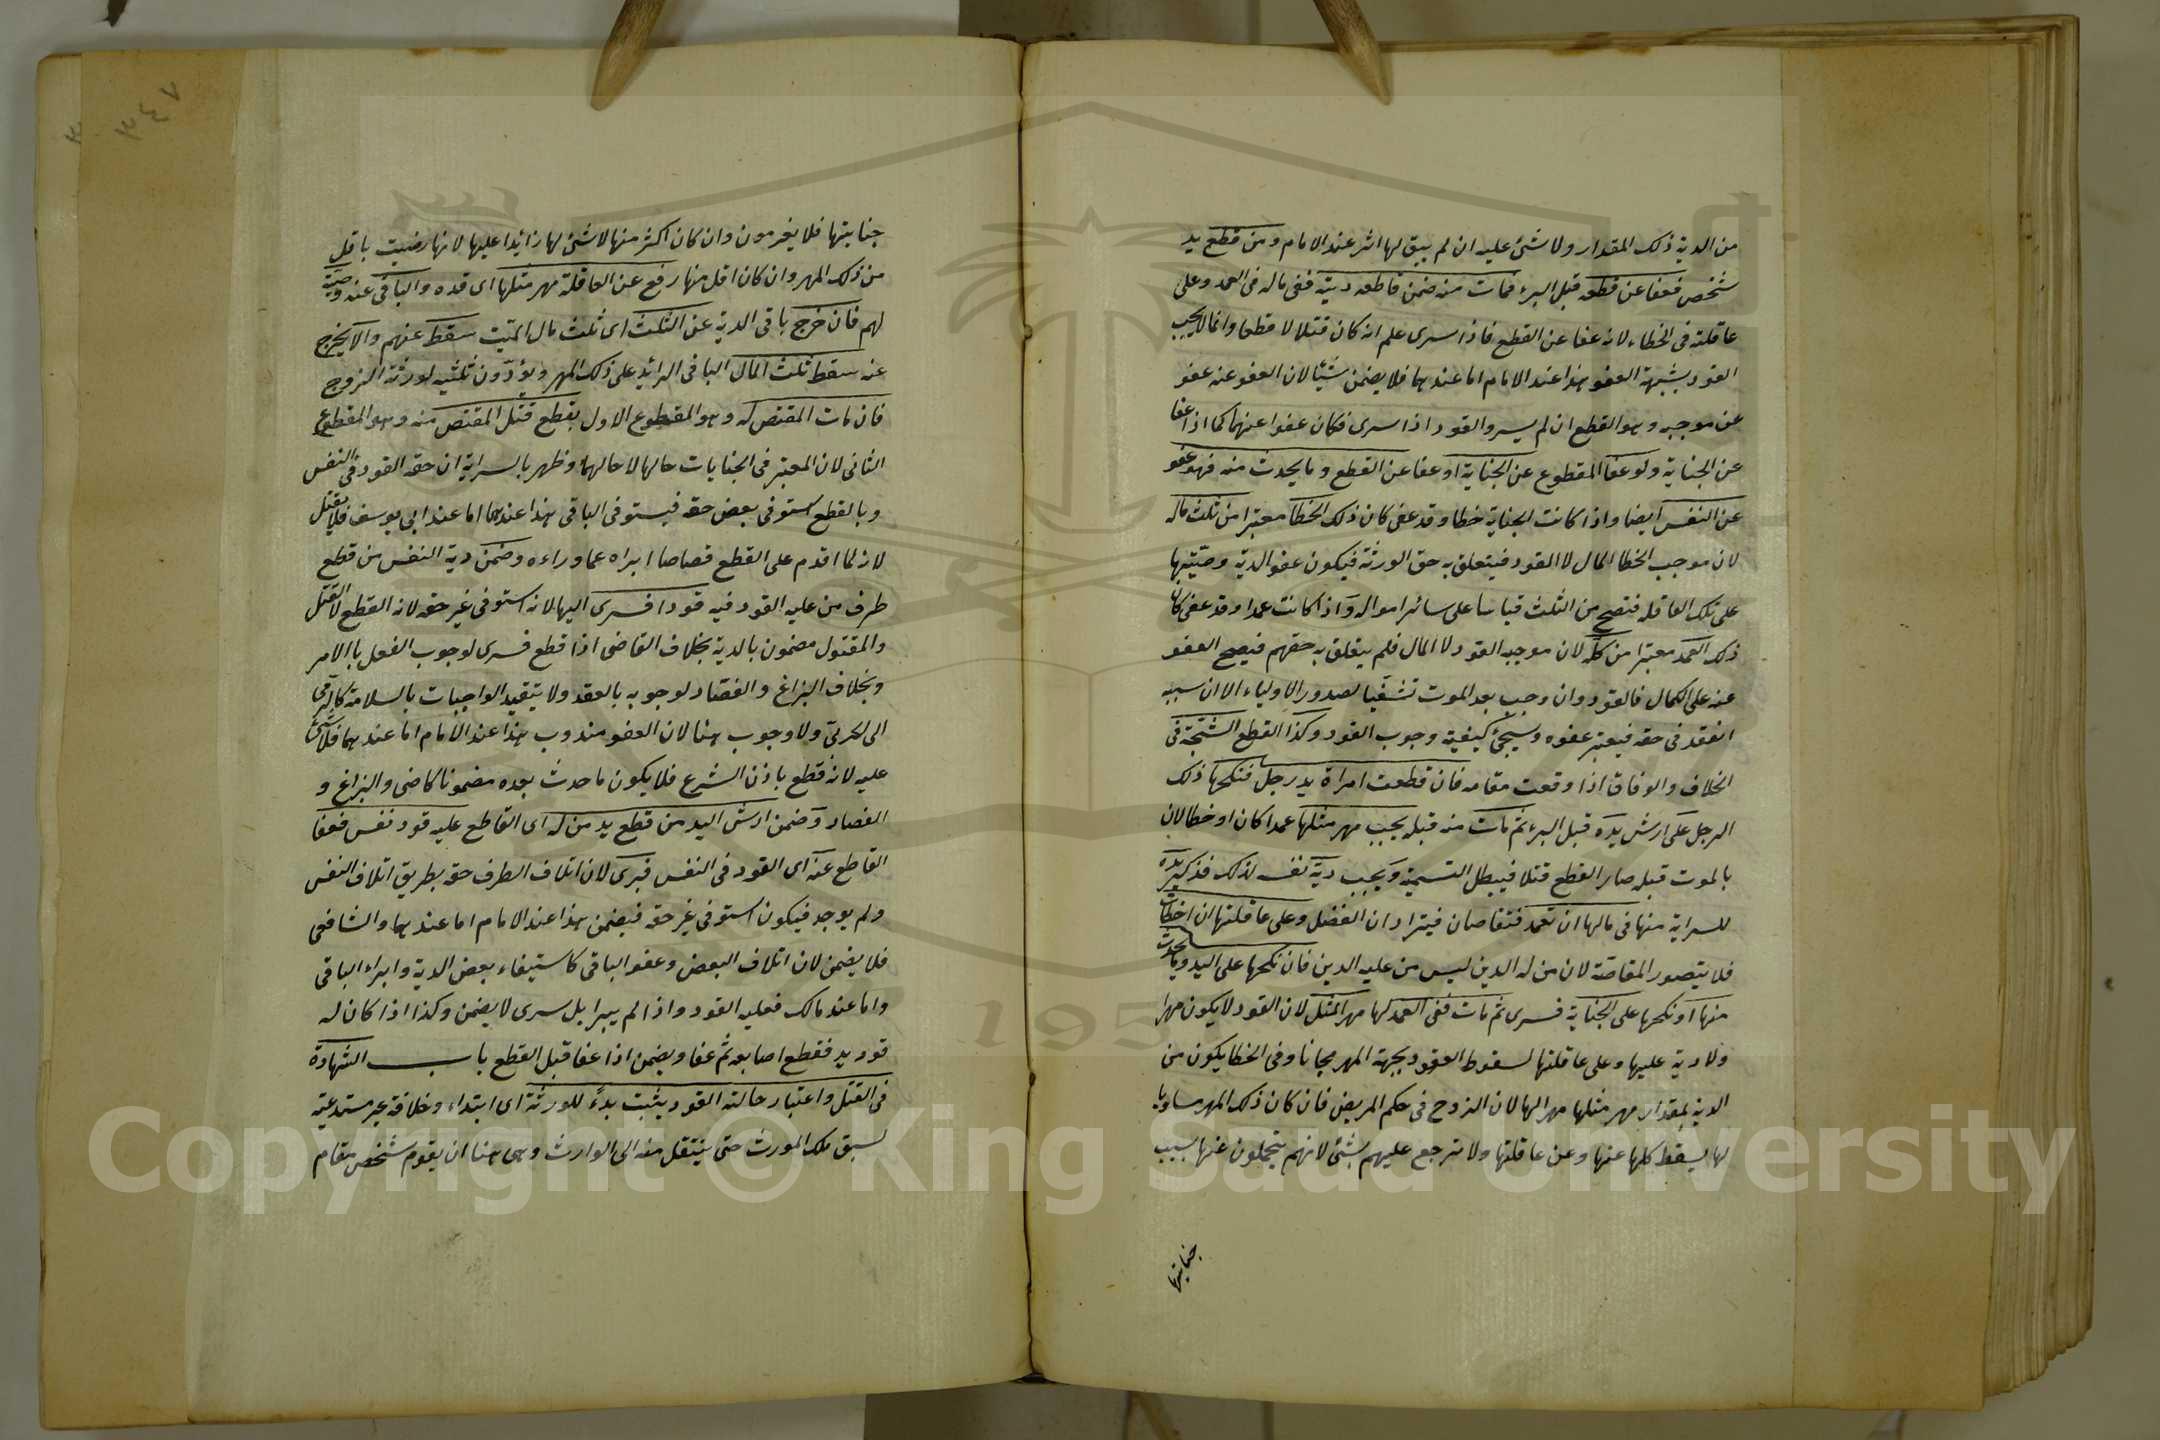 من الدية ذلك المقدار ولا شئ عليه ان لم يبق لها اثر عند الامام ومن قطع يد
شخص فعفا عن قطعه قبل البرء فمات منه ضمن قاطعه ديته ففى ماله فى العمد وعلى
عاقلته فى الخطاء لانه عفا عن القطع فاذا سرى علم انه كان قتلا لا قطعا وانما لا يجب
القود بشبهة العفو هذا عند الامام اما عندهما فلا يضمن شيئا لان العفو عنه عفو
عن موجبه وهو القطع ان لم يسر والقود اذا سرى فكان عفوا عنهما كما اذا عفا
عن الجناية ولو عفا المقطوع عن الجناية او عفا عن القطع وما يحدث منه فهو عفو
عن النفس ايضا واذا كانت الجناية خطا وقد عفى كان ذلك الخطأ معتبرا من ثلث ماله
لان موجب الخطا المال لا القود فيتعلق به حق الورثة فيكون عفو الدية وصيّتها
على تلك العاقله فتصح من الثلث قياسا على سائر امواله واذا كانت عمدا وقد عفى كان
ذلك العمد معتبرا من كله لان موجبه القود لا المال فلم يتعلق به حقهم فيصح العفو
عنه على الكمال فالقود وان وجب بعد الموت تشفّيا لصدور الاولياء الا ان سببه
انعقد فى حقه فيعتبر عفوه وسيجئ كيفية وجوب القود وكذا القطع الشجّة فى
الخلاف والوفاق اذا وقعت مقامه فان قطعت امراة يد رجل فنكحها ذلك
الرجل على ارش يده قبل البرء ثم مات منه قبله يجب مهر مثلها عمدا كان او خطا لان
بالموت قبله صار القطع قتلا فيبطل التسمية ويجب دية نفسه لذلك فذكر يده
للسراية منها فى مالها ان تعمد فتقاصان فيترادان الفضل وعلى عاقلتها ان اخطات
فلا يتصور المقاصّة لان من له الدين ليس من عليه الدين فان نكحها على اليد وما يحدث
منها او نكحها على الجناية فسرى ثم مات ففى العمد لها مهر المثل لان القود لا يكون مهرا
ولا دية عليها وعلى عاقلتها لسقوط القود بجهة المهر مجانا وفى الخطا يكون من
الدية بمقدار مهر مثلها مهرا لها لان الزوج فى حكم المريض فان كان ذلك المهر مساويا
لها يسقط كلها عنها وعن عاقلتها ولا ترجع عليهم بشئ لانهم يتحملون عنها بسبب
جنايتها
٣٤٧
جنايتها فلا يغرمون وان كان اكثر منها لا شئ لها زائدا عليها لانها رضيت باقل
من ذلك المهر وان كان اقل منها رفع عن العاقلة مهر مثلها اى قدره والباقى عنه وصيّة
لهم فان خرج باقى الدية عن الثلث اى ثلث مال الميّت سقط عنهم والا يخرج
عنه سقط ثلث المال الباقى الزائد على ذلك المهر ويؤدّون ثلثيه لورثة الزوج
فان مات المقتص له وهو المقطوع الاول بقطع قتل المقتص منه وهو المقطوع
الثانى لان المعتبر فى الجنايات حالها لا حالهما وظهر بالسراية ان حقه القود فى النفس
وبالقطع استوفى بعض حقه فيستوفى الباقى هذا عندهما اما عند ابى يوسف فلا يقتل
لانه لما اقدم على القطع قصاصا ابراه عما وراءه وضمن دية النفس من قطع
طرف من عليه القود فيه قودا فسرى اليها لانه استوفى غير حقه لانه القطع لا القتل
والمقتول مضمون بالدية بخلاف القاضى اذا قطع فسرى لوجوب الفعل بالامر
وبخلاف البزاغ والفصّاد لوجوبه بالعقد ولا يتقيد الواجبات بالسلامة كالرّمى
الى الحربىّ ولا وجوب هنا لان العفو مندوب هذا عند الامام اما عندهما فلا شئ
عليه لانه قطع باذن الشرع فلا يكون ما حدث بعده مضمونا كالقاضى والبزاغ و
الفصاد وضمن ارش اليد من قطع يد من له اى القاطع عليه قود نفس فعفا
القاطع عنه اى القود فى النفس فبرى لان اتلاف الطرف حقه بطريق اتلاف النفس
ولم يوجد فيكون استوفى غير حقه فيضمن هذا عند الامام اما عندهما والشافعى
فلا يضمن لان اتلاف البعض وعفو الباقى كاستيفاء بعض الدية وابراء الباقى
واما عند مالك فعليه القود واذا لم يبرا بل سرى لا يضمن وكذا اذا كان له
قود يد فقطع اصابعه ثم عفا ويضمن اذا عفا قبل القطع باب الشهادة
فى القتل واعتبار حالته القود يثبت بدءً للورثة اى ابتداء وخلافة غير مستدعية
لسبق ملك المورث حتى ينتقل منه الى الوارث وهى هنا ان يقوم شخص مقام
Copyright © King Saud University
195